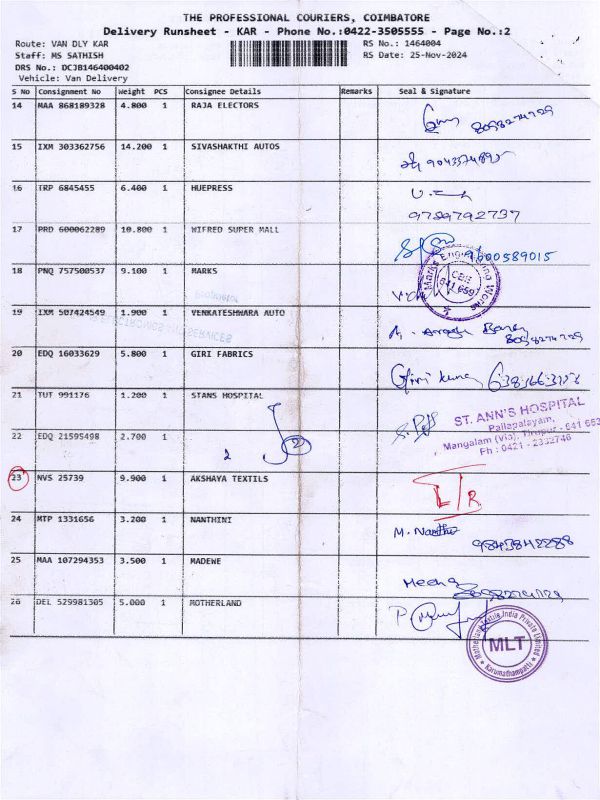 THE PROFESSIONAL COURIERS, COIMBATORE
Delivery Runsheet - KAR - Phone No.:0422-3505555 - Page No.:2
Route: VAN DLY KAR RS No.: 1464004
Staff: MS SATHISH RS Date: 25-Nov-2024
DRS No.: DCJB146400402
Vehicle: Van Delivery
S No Consignment No Weight PCS Consignee Details Remarks Seal & Signature
14 MAA 868189328 4.800 1 RAJA ELECTORS
8098274729
15 IXM 303362756 14.200 1 SIVASHAKTHI AUTOS
16 TRP 6845455 6.400 1 HUEPRESS
9789792737
17 PRD 600062289 10.800 1 WIFRED SUPER MALL
9600589015
18 PNQ 757500537 9.100 1 MARKS
Marks Engineering Works
641 659
19 IXM 507424549 1.900 1 VENKATESHWARA AUTO
8098274729
20 EDQ 16033629 5.800 1 GIRI FABRICS
Giri Kumar
21 TUT 991176 1.200 1 STANS HOSPITAL
ST. ANN'S HOSPITAL
Pallapalayam,
Mangalam (Via), Tirupur - 641 663
Ph : 0421 - 2332746
22 EDQ 21595498 2.700 1
2
23 NVS 25739 9.900 1 AKSHAYA TEXTILS
L/R
24 MTP 1331656 3.200 1 NANTHINI
M. Nanthini
9843842288
25 MAA 107294353 3.500 1 MADEWE
Meena
8098274729
26 DEL 529981305 5.000 1 MOTHERLAND
MLT
India Private Limited
Karumathampatti